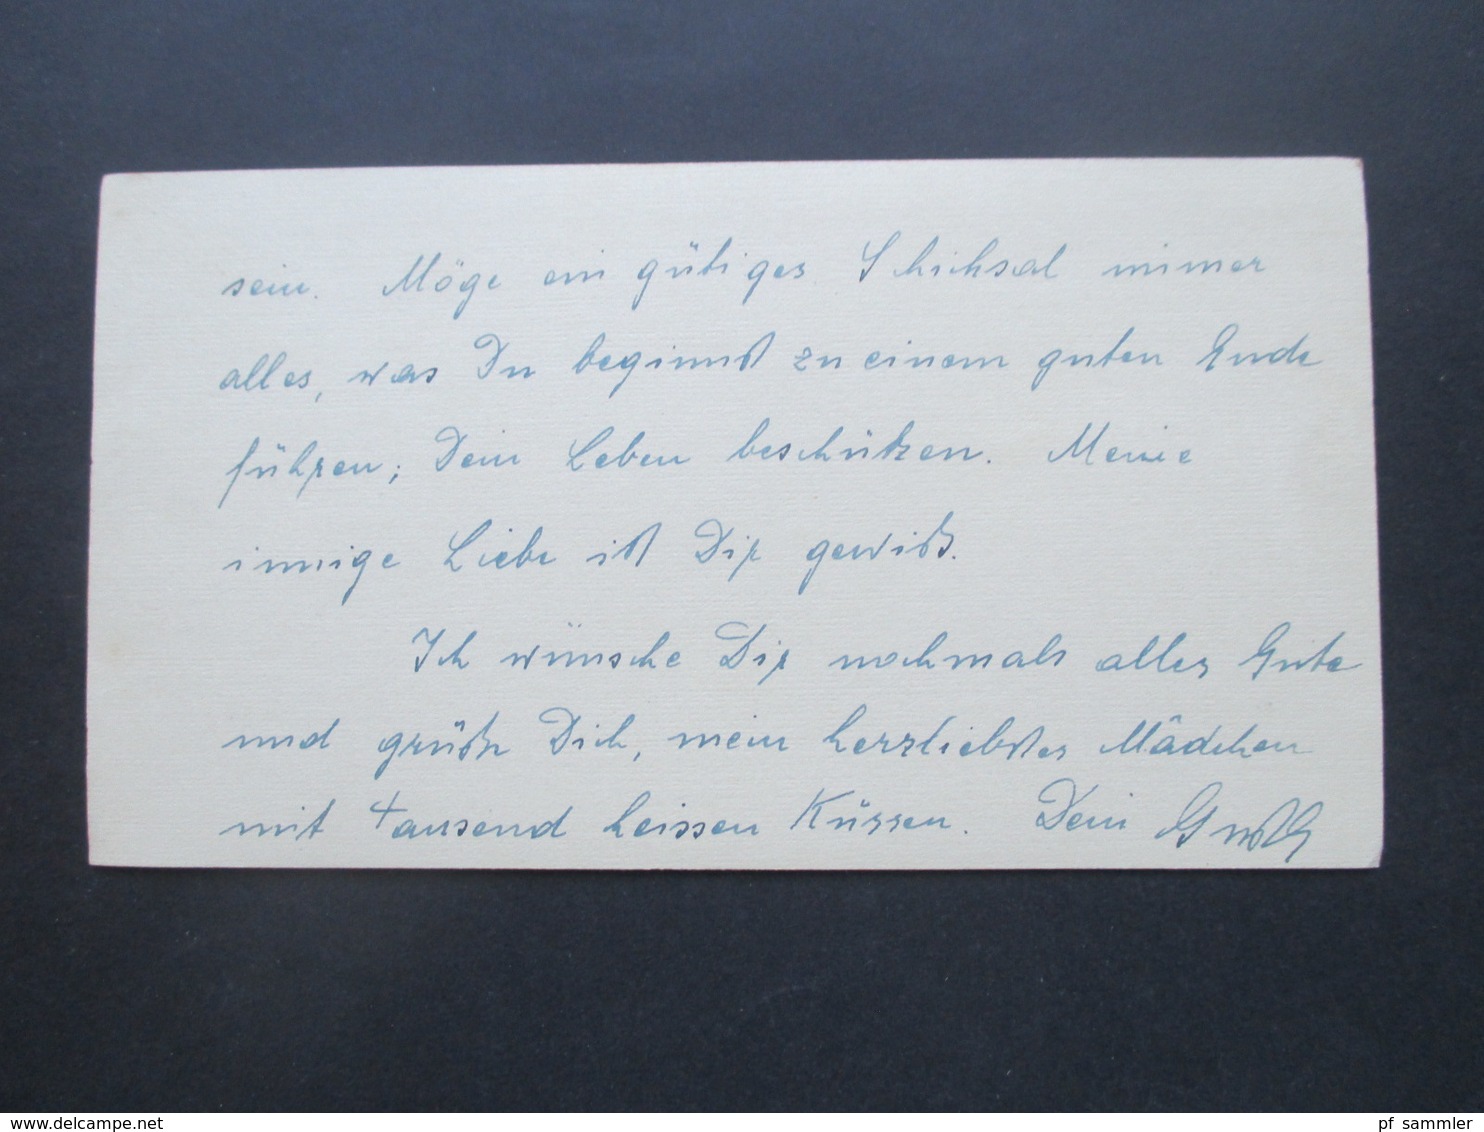 sein. Möge ein gütiges Schicksal immer
alles, was Du beginnst zu einem guten Ende
führen; Dein Leben beschützen. Meine
innige Liebe ist Dir gewiß.
Ich wünsche Dir nochmals alles Gute
und grüße Dich, mein herzliebstes Mädchen
mit tausend heissen Küssen. Dein
delcampe.net
pf_sammler